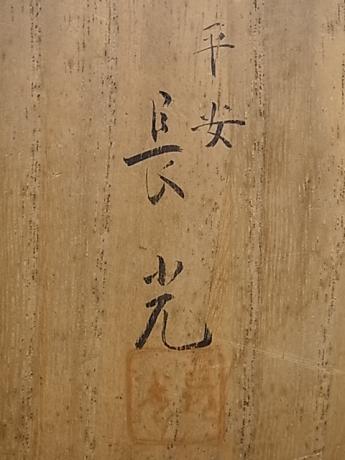 平安
長光